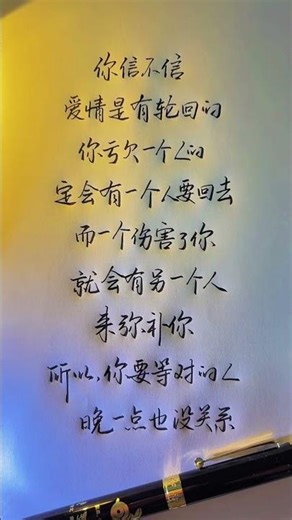 你信不信
爱情是有轮回的
你亏欠一个人的
定会有一个人要回去
而一个伤害了你
就会有另一个人
来弥补你
所以,你要等对的人
晚一点也没关系